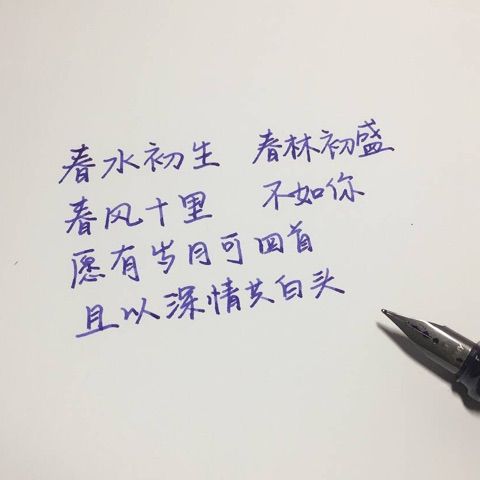 春水初生 春林初盛
春风十里 不如你
愿有岁月可回首
且以深情共白头